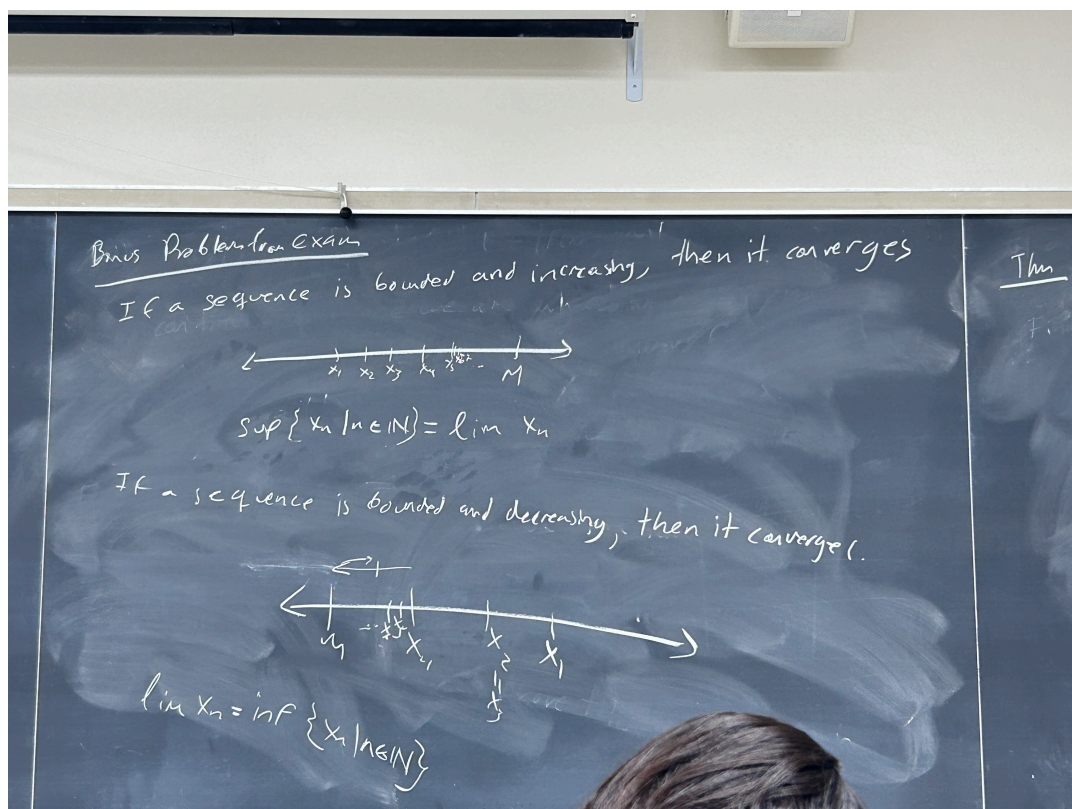 Bonus Problem from Exam
If a sequence is bounded and increasing, then it converges
x₁ x₂ x₃ x₄ x₅ ... M
sup{xₙ|n∈ℕ}= lim xₙ
If a sequence is bounded and decreasing, then it converges.
M ... x₄ x₂ x₁
=
x₃
lim xₙ = inf {xₙ|n∈ℕ}
Thm